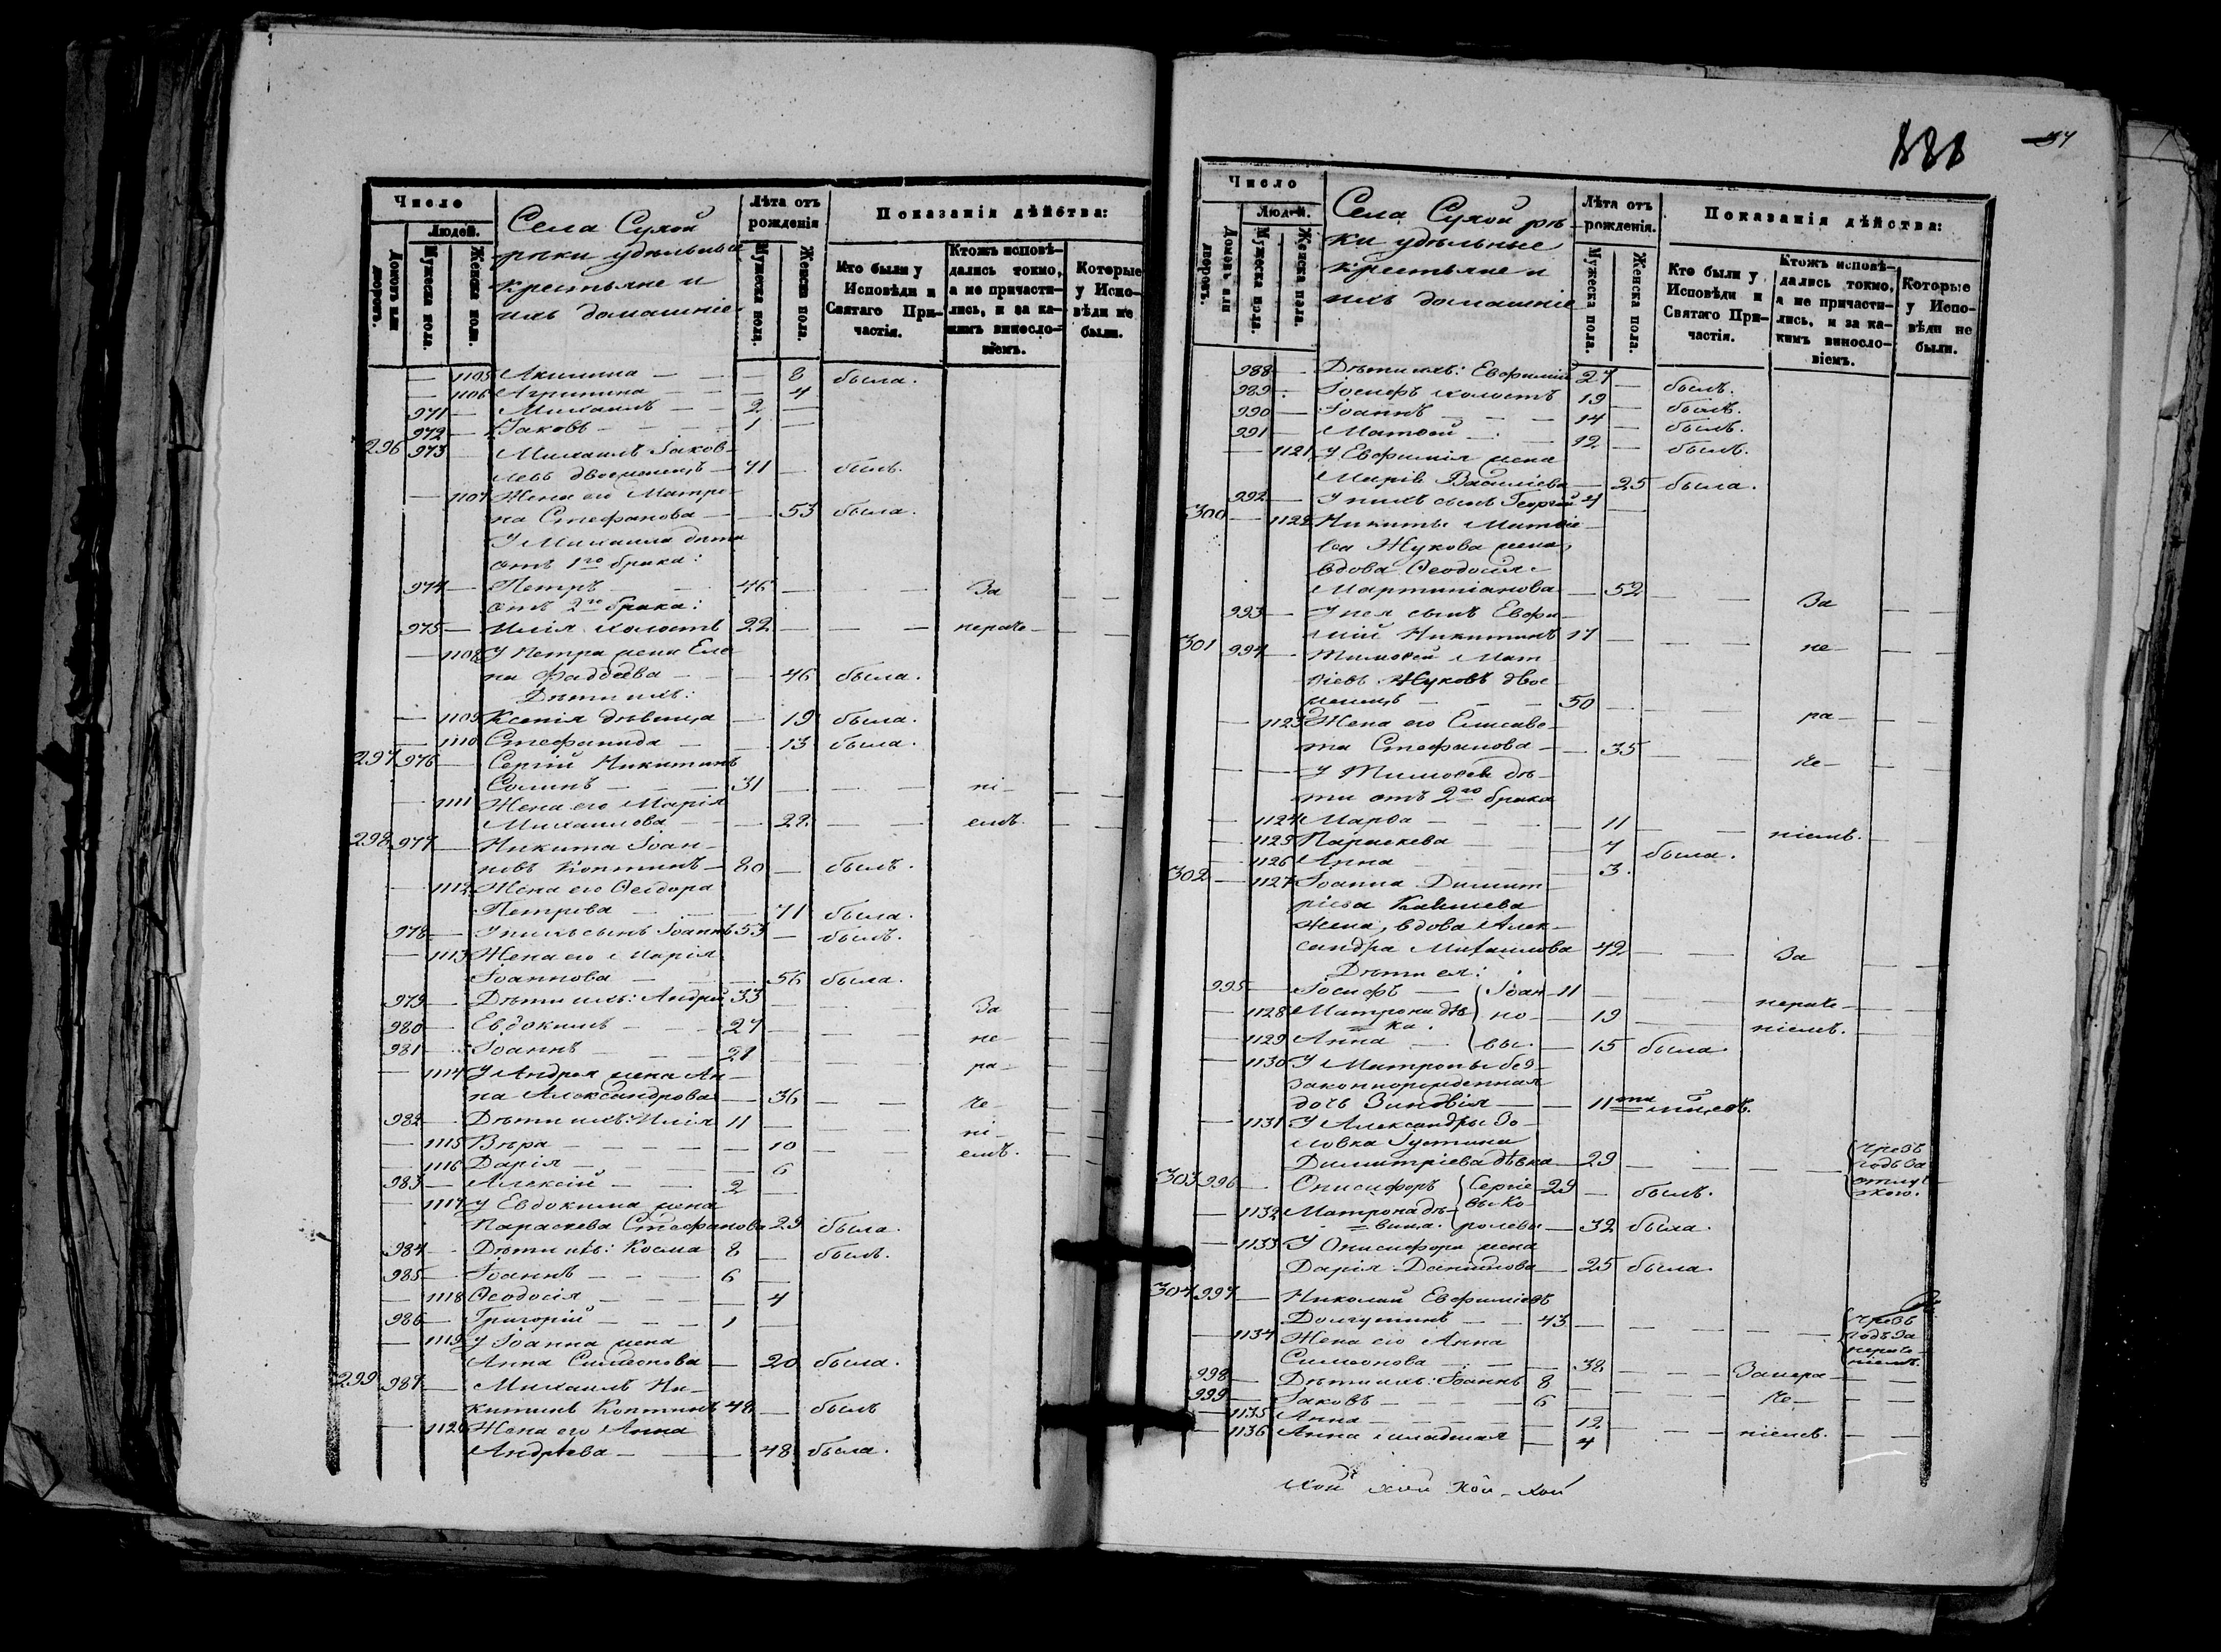 Число
Людей.
Домовъ или дворовъ.
Мужеска пола.
Женска пола.
Села Сухой
рѣки удѣльные
крестьяне и
ихъ домашніе
Лѣта отъ рожденія
Мужеска пола.
Женска пола.
Показанія дѣйства:
Кто были у Исповѣди и Святаго Причастія.
Ктожъ исповѣдались токмо, а не причастились, и за какимъ винословіемъ.
Которые у Исповѣди не были.
— 1105 Акилина — — — 8 была.
— 1106 Агрипина — — — 4
971 — Михаилъ — — 2 —
972 — Іаковъ — — — 1 —
296 973 — Михаилъ Іаков-
левъ двоеженецъ — 71 — былъ.
— 1107 Жена его Матро-
на Стефанова — — 53 была.
У Михаила дѣти
отъ 1го брака:
974 — Петръ — 46 — — — За
отъ 2го брака:
975 — Илія холостъ 22 — — — нераче- — —
— 1108 У Петра жена Еле
на Фаддеева — — 46 была.
Дѣти ихъ:
— 1109 Ксенія дѣвица — 19 была.
— 1110 Стефанида — — 13 была.
297 976 — Сергій Никитинъ
Сотинъ — — — 31 — — — ні- — —
— 1111 Жена его Марія
Михаилова — — — 22 — — емъ. — —
298 977 — Никита Іоан-
новъ Коптинъ — 80 — былъ.
— 1112 Жена его Ѳеодора
Петрова — — — 71 была.
978 — У нихъ сынъ Іоаннъ 53 — былъ.
— 1113 Жена его Марія
Іоаннова — — — 56 была.
979 — Дѣти ихъ: Андрей 33 — — — За
980 — Евдокимъ — — 27 — — — не- —
981 — Іоаннъ — — — 21 — — — ра- —
— 1114 У Андрея жена Ан-
на Александрова — 36 — — че- —
982 — Дѣти ихъ: Илія 11 — — — ні- —
— 1115 Вѣра — — — — 10 — — емъ. —
— 1116 Дарія — — — — 6
983 — Алексій — — 2 —
— 1117 У Евдокима жена
Параскева Стефанова 29 была.
984 — Дѣти ихъ: Косма 8 — былъ.
985 — Іоаннъ — — — 6 —
— 1118 Ѳеодосія — — — 4
986 — Григорій — — — 1 —
— 1119 У Іоанна жена
Анна Симеонова — 20 была.
299 987 — Михаилъ Ни-
китинъ Коптинъ 48 — былъ
— 1120 Жена его Анна
Андрѣева — — 48 была.
37
Число
Людей.
Домовъ или дворовъ.
Мужеска пола.
Женска пола.
Села Сухой рѣ-
ки удѣльные
крестьяне и
ихъ домашніе
Лѣта отъ рожденія.
Мужеска пола.
Женска пола.
Показанія дѣйства:
Кто были у Исповѣди и Святаго Причастія.
Ктожъ исповѣдались токмо, а не причастились, и за какимъ винословіемъ.
Которые у Исповѣди не были.
988 — Дѣти ихъ: Евфимій 27 — былъ.
989 — Іосифъ холостъ 19 — былъ.
990 — Іоаннъ — — — 14 — былъ.
991 — Матѳей — — 12 — былъ.
— 1121 У Евфимія жена
Марія Василіева — 25 была.
992 — У нихъ сынъ Георгій 4 —
300 — 1122 Никиты Матѳіе-
ва Жукова жена
вдова Ѳеодосія
Мартиніанова — 52 — — За — —
993 — У нея сынъ Евфи-
мій Никитинъ 17 — — — не- — —
301 994 — Тимоѳей Мат-
ѳіевъ Жуковъ двое-
женецъ — — — 50 — — — ра- — —
— 1123 Жена его Елисаве-
та Стефанова — — 35 — — че- — —
У Тимоѳея дѣ-
ти отъ 2го брака
— 1124 Марѳа — — — — 11 — — ніемъ. — —
— 1125 Параскева — — 7 была.
— 1126 Анна — — — 3.
302 — 1127 Іоанна Димит-
ріева
жена, вдова Алек-
сандра Михаилова 42 — — За — —
Дѣти ея:
995 — Іосифъ — Іоан- 11 — — — нераче- — —
— 1128 Матрона дѣв-
ка. но- — 19 — — ніемъ.
— 1129 Анна — вы. — 15 была.
— 1130 У Матроны без-
законнорожденная
дочь Зиновія — — 11ти мѣсяцевъ.
— 1131 У Александры зо-
ловка Іустина
Димитріева дѣвка — 29 — — — Чрезъ годъ за отлучкою.
303 996 — Онисифоръ Сергіе- 29 — былъ.
— 1132 Матрона дѣ- вы Ко-
вица. ролевы — 32 была.
— 1133 У Онисифора жена
Дарія Даниилова — 25 была.
304 997 — Николай Евфиміевъ
Долгушинъ — — 43 — — — — Чрезъ годъ за нераченіемъ.
— 1134 Жена его Анна
Симеонова — — — 38 — — Занера- — —
998 — Дѣти ихъ: Іоаннъ 8 —
999 — Іаковъ — — — 6 — — — че- — —
— 1135 Анна — — — — 12 — — ніемъ. — —
— 1136 Анна младшая — 4